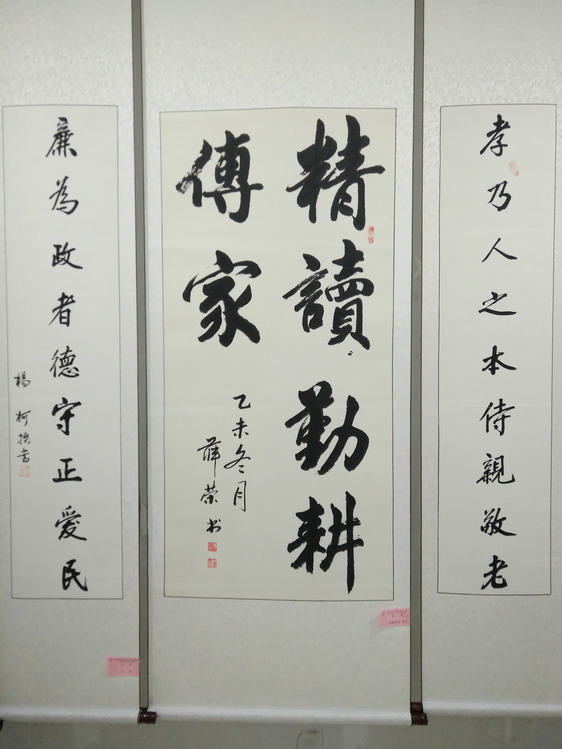 孝乃人之本侍親敬老
精讀勤耕
傳家
乙未冬月
薛荣书
廉為政者德守正愛民
楊柯